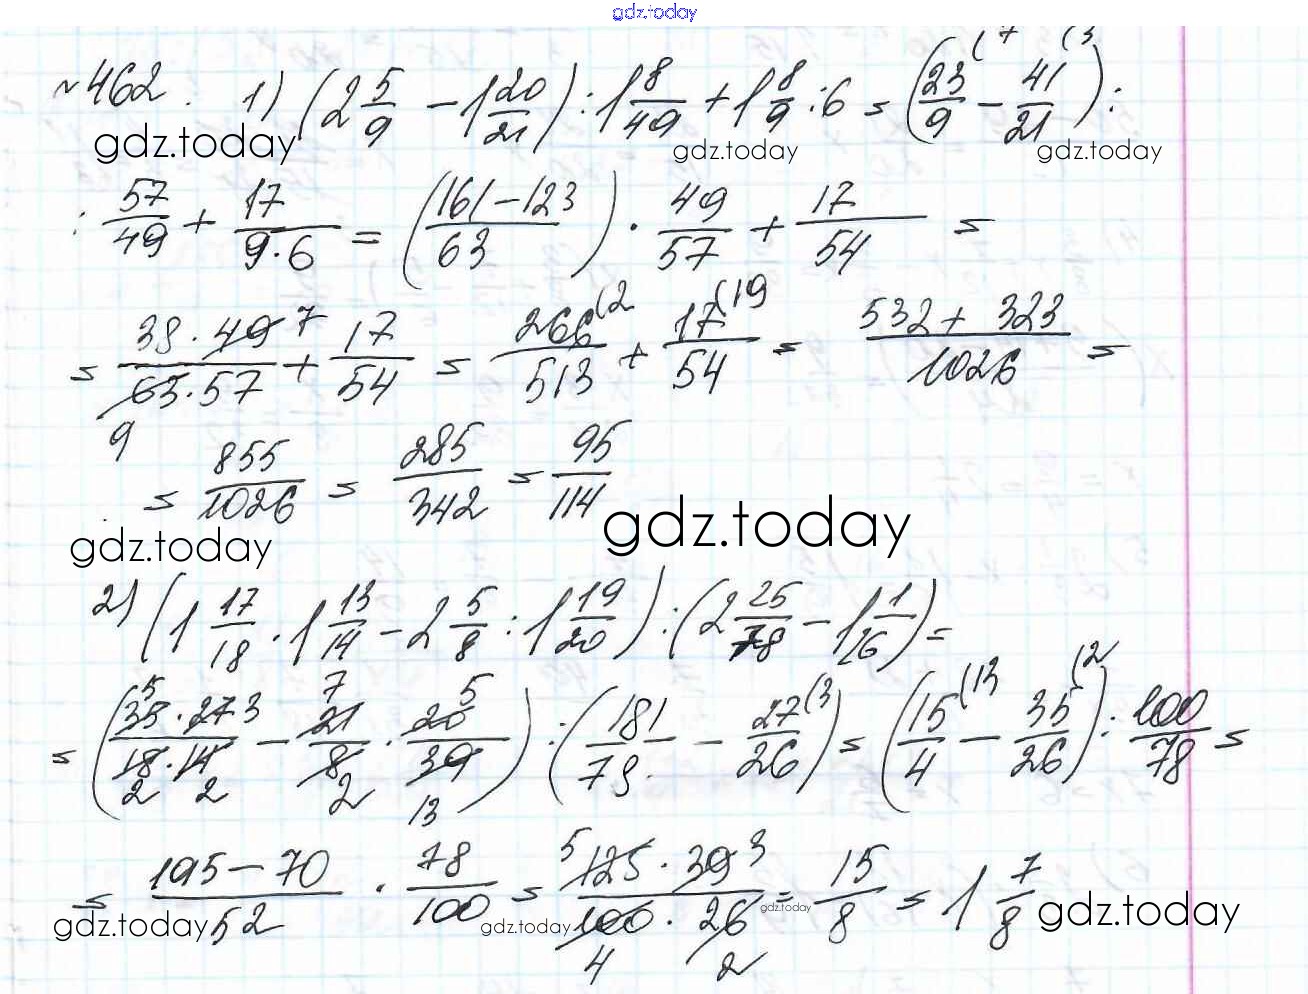 gdz.today
№462. 1) (2 5/9 - 1 20/21) : 1 8/49 + 1 8/9 : 6 = (23/9 (7 - 41/21 (3) :
gdz.today gdz.today gdz.today
: 57/49 + 17/(9·6) = ((161-123)/63) · 49/57 + 17/54 =
= (38·49 7)/(63·57 9) + 17/54 = 266/513 (2 + 17/54 (19 = (532 + 323)/1026 =
= 855/1026 = 285/342 = 95/114
gdz.today gdz.today
2) (1 17/18 · 1 13/14 - 2 5/8 : 1 19/20) : (2 25/78 - 1 1/26) =
= ((5 35·27 3)/(18·14 2 2) - 7 21/8 2 · 5 20/39 13) : (181/78 - 27/26 (3) = (15/4 (13 - 35/26 (2) : 100/78 =
= (195-70)/52 · 78/100 = (5 125·39 3)/(100·26 4 2) = 15/8 = 1 7/8
gdz.today gdz.today gdz.today gdz.today